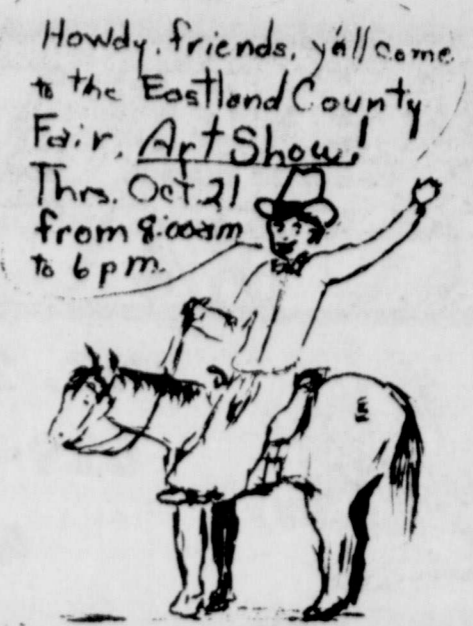 Howdy, friends, y'all come
to the Eastland County
Fair, Art Show!
Thrs. Oct. 21
from 8:00am
to 6 pm.
E